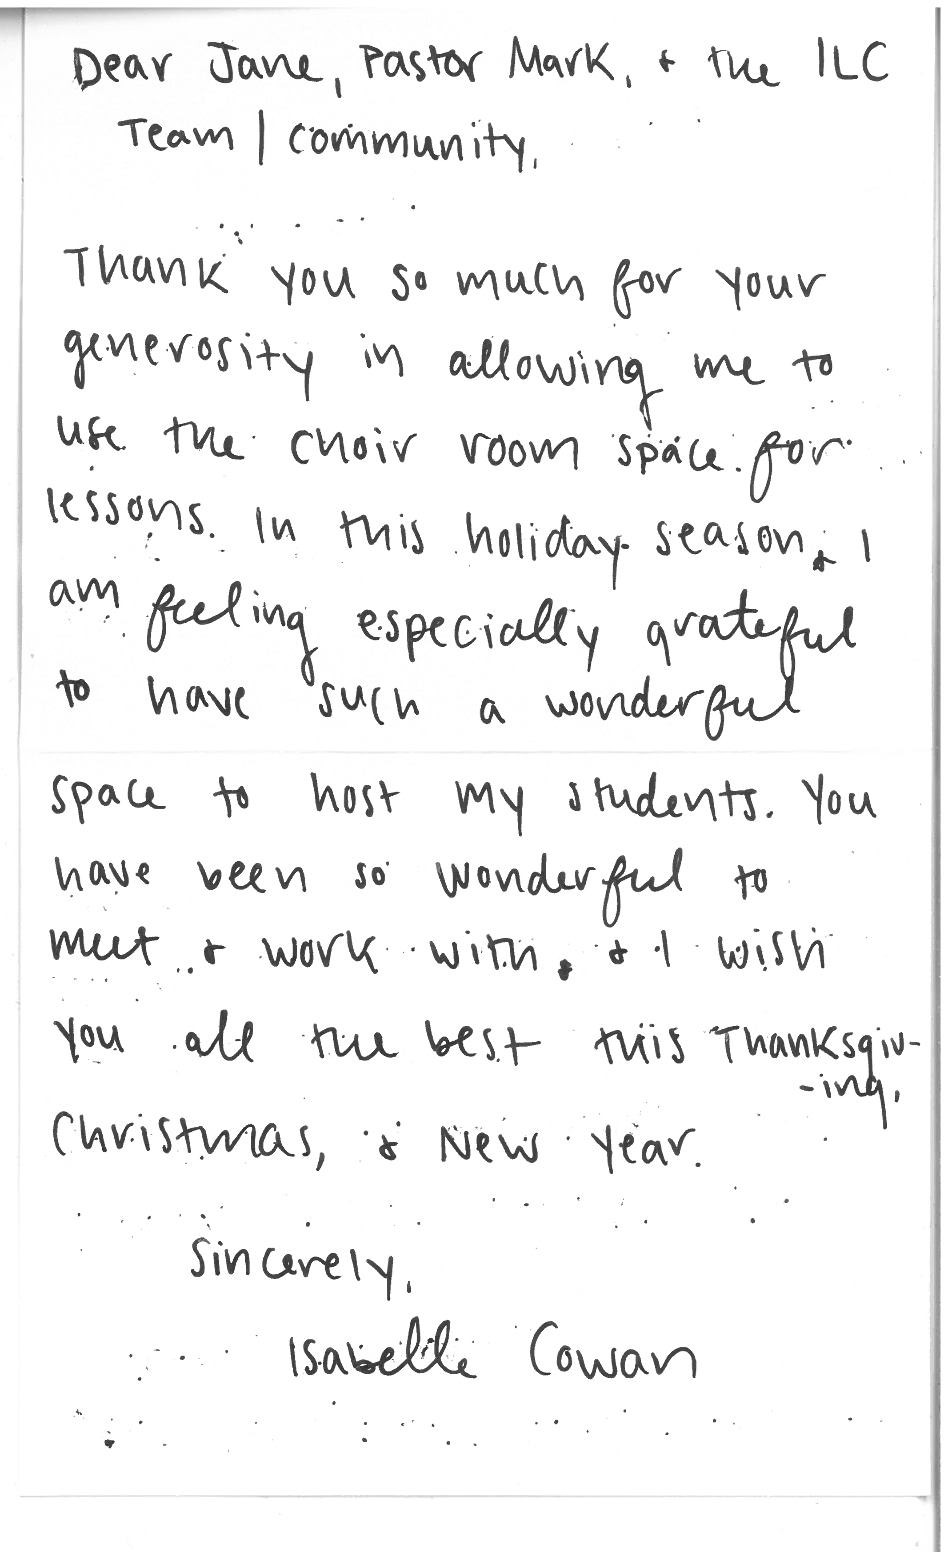 Dear Jane, Pastor Mark, & the ILC
Team | community,
Thank you so much for your
generosity in allowing me to
use the choir room space for
lessons. In this holiday season, I
am feeling especially grateful
to have such a wonderful
space to host my students. You
have been so wonderful to
meet & work with, & I wish
you all the best this Thanksgiv-
-ing,
Christmas, & New Year.
Sincerely,
Isabelle Cowan